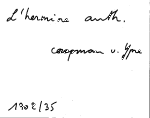 L'hermine auth.
coupman v. Ype
1302/35